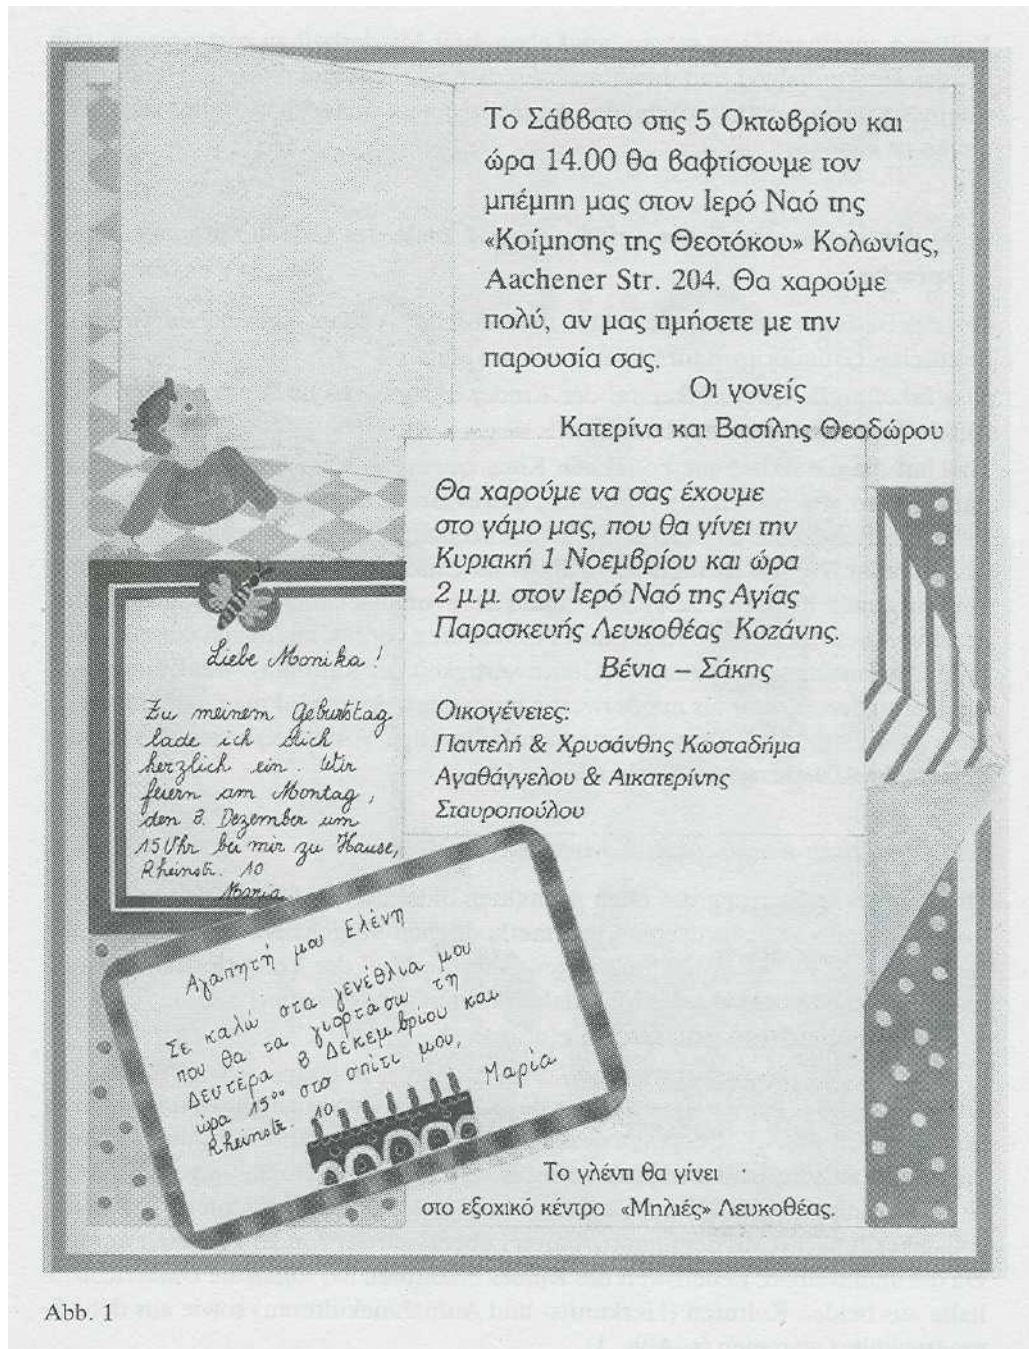 Το Σάββατο στις 5 Οκτωβρίου και
ώρα 14.00 θα βαφτίσουμε τον
μπέμπη μας στον Ιερό Ναό της
«Κοίμησης της Θεοτόκου» Κολωνίας,
Aachener Str. 204. Θα χαρούμε
πολύ, αν μας τιμήσετε με την
παρουσία σας.
Οι γονείς
Κατερίνα και Βασίλης Θεοδώρου
Θα χαρούμε να σας έχουμε
στο γάμο μας, που θα γίνει την
Κυριακή 1 Νοεμβρίου και ώρα
2 μ.μ. στον Ιερό Ναό της Αγίας
Παρασκευής Λευκοθέας Κοζάνης.
Βένια – Σάκης
Οικογένειες:
Παντελή & Χρυσάνθης Κωσταδήμα
Αγαθάγγελου & Αικατερίνης
Σταυροπούλου
Liebe Monika!
Zu meinem Geburtstag
lade ich dich
herzlich ein. Wir
feiern am Montag,
den 8. Dezember um
15 Uhr bei mir zu Hause,
Rheinstr. 10
Maria
Αγαπητή μου Ελένη
Σε καλώ στα γενέθλια μου
που θα τα γιορτάσω τη
Δευτέρα 8 Δεκεμβρίου και
ώρα 15⁰⁰ στο σπίτι μου,
Rheinstr. 10
Μαρία
Το γλέντι θα γίνει
στο εξοχικό κέντρο «Μηλιές» Λευκοθέας.
Abb. 1